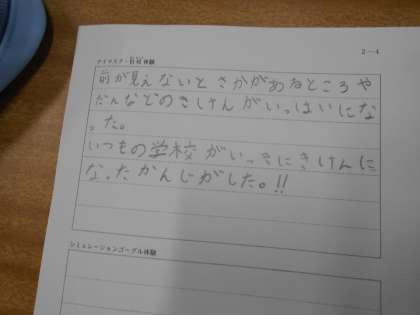 2-4
アイマスク・白杖体験
前が見えないと さかがあるところや
だんなどのきけんがいっぱいにな
った。
いつもの学校がいっきにきけんに
なったかんじがした。!!
シミュレーションゴーグル体験